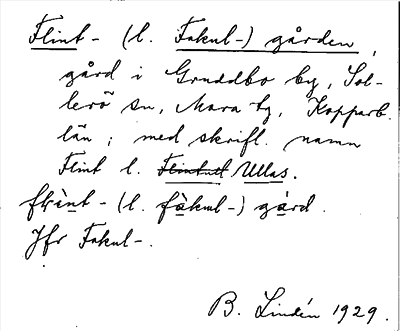 Flint- (l. Fakul-) gården,
gård i Gruddbo by, Sol-
lerö sn, Mora tg, Kopparb.
län; med skrifl. namn
Flint l. Ullas.
flìnt- (l. fàkul-) gård.
Jfr Fakul-.
B. Lindén 1929.